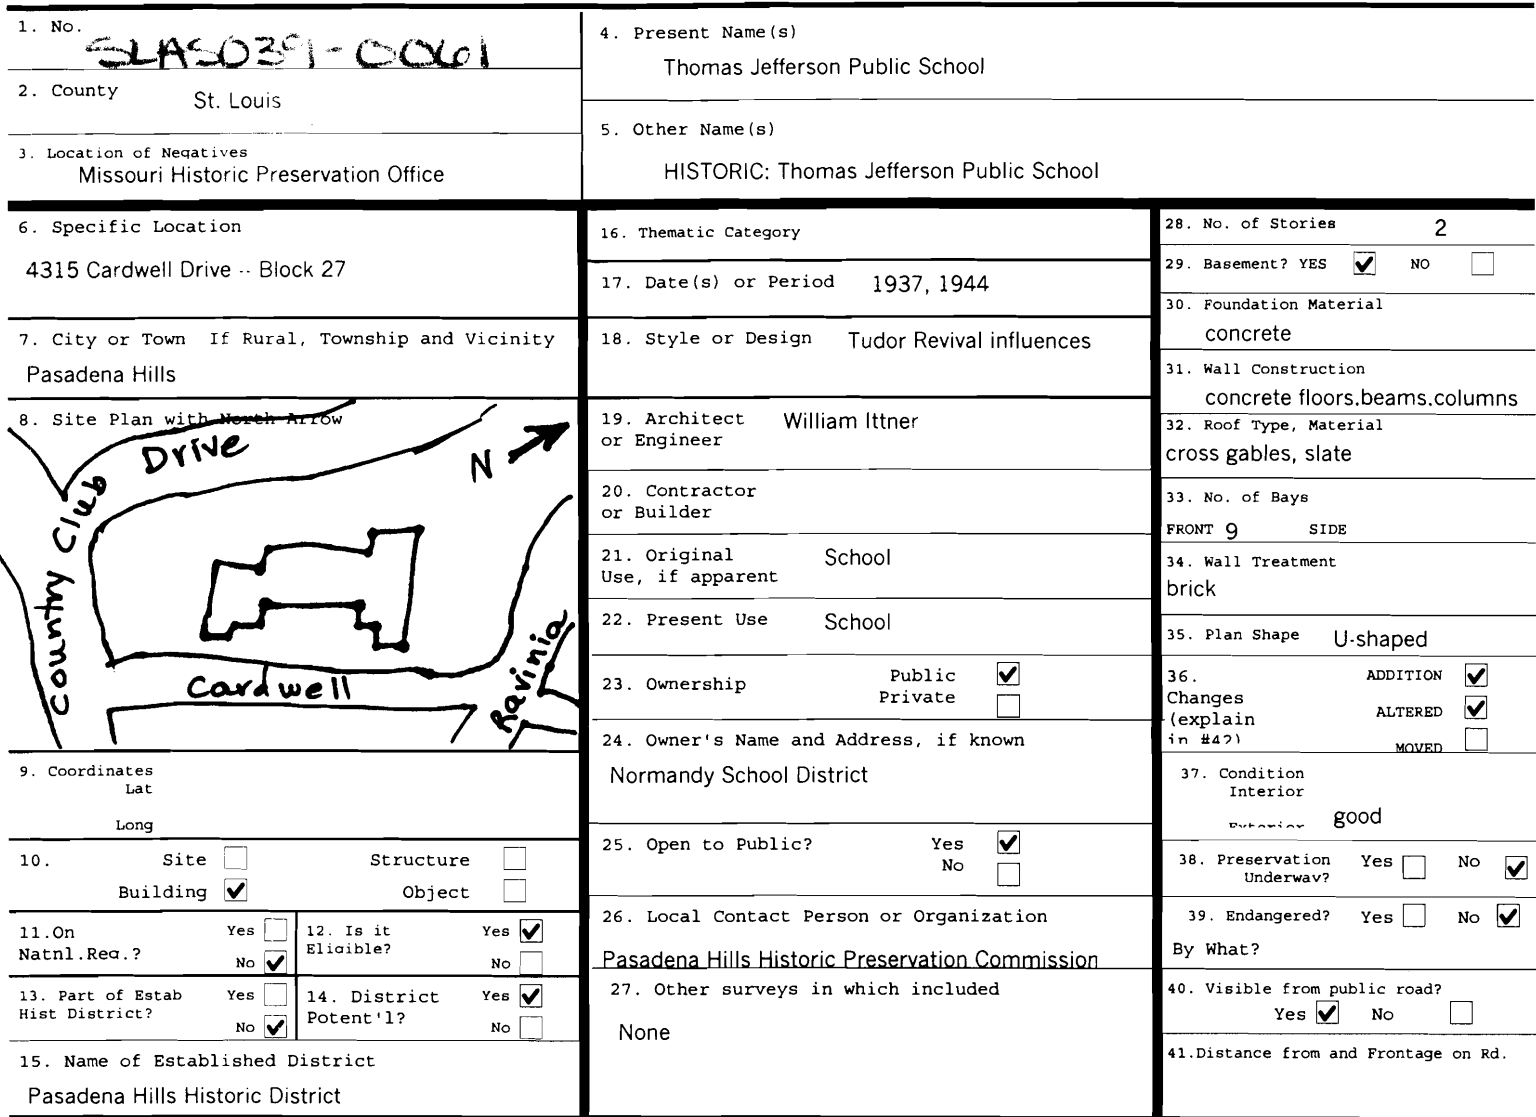 1. No.
SLAS039-0061
2. County St. Louis
3. Location of Negatives
Missouri Historic Preservation Office
4. Present Name(s)
Thomas Jefferson Public School
5. Other Name(s)
HISTORIC: Thomas Jefferson Public School
6. Specific Location
4315 Cardwell Drive -- Block 27
7. City or Town If Rural, Township and Vicinity
Pasadena Hills
8. Site Plan with North Arrow
Country Club Drive
N
Cardwell
Ravinia
9. Coordinates
Lat
Long
10. Site Structure
Building ✔ Object
11.On Yes
Natnl.Reg.?
No ✔
12. Is it Yes ✔
Eligible?
No
13. Part of Estab Yes
Hist District?
No ✔
14. District Yes ✔
Potent'l?
No
15. Name of Established District
Pasadena Hills Historic District
16. Thematic Category
17. Date(s) or Period 1937, 1944
18. Style or Design Tudor Revival influences
19. Architect William Ittner
or Engineer
20. Contractor
or Builder
21. Original School
Use, if apparent
22. Present Use School
23. Ownership Public ✔
Private
24. Owner's Name and Address, if known
Normandy School District
25. Open to Public? Yes ✔
No
26. Local Contact Person or Organization
Pasadena Hills Historic Preservation Commission
27. Other surveys in which included
None
28. No. of Stories 2
29. Basement? YES ✔ NO
30. Foundation Material
concrete
31. Wall Construction
concrete floors.beams.columns
32. Roof Type, Material
cross gables, slate
33. No. of Bays
FRONT 9 SIDE
34. Wall Treatment
brick
35. Plan Shape U-shaped
36. ADDITION ✔
Changes
(explain ALTERED ✔
in #42)
MOVED
37. Condition
Interior
Exterior good
38. Preservation Yes No ✔
Underway?
39. Endangered? Yes No ✔
By What?
40. Visible from public road?
Yes ✔ No
41.Distance from and Frontage on Rd.